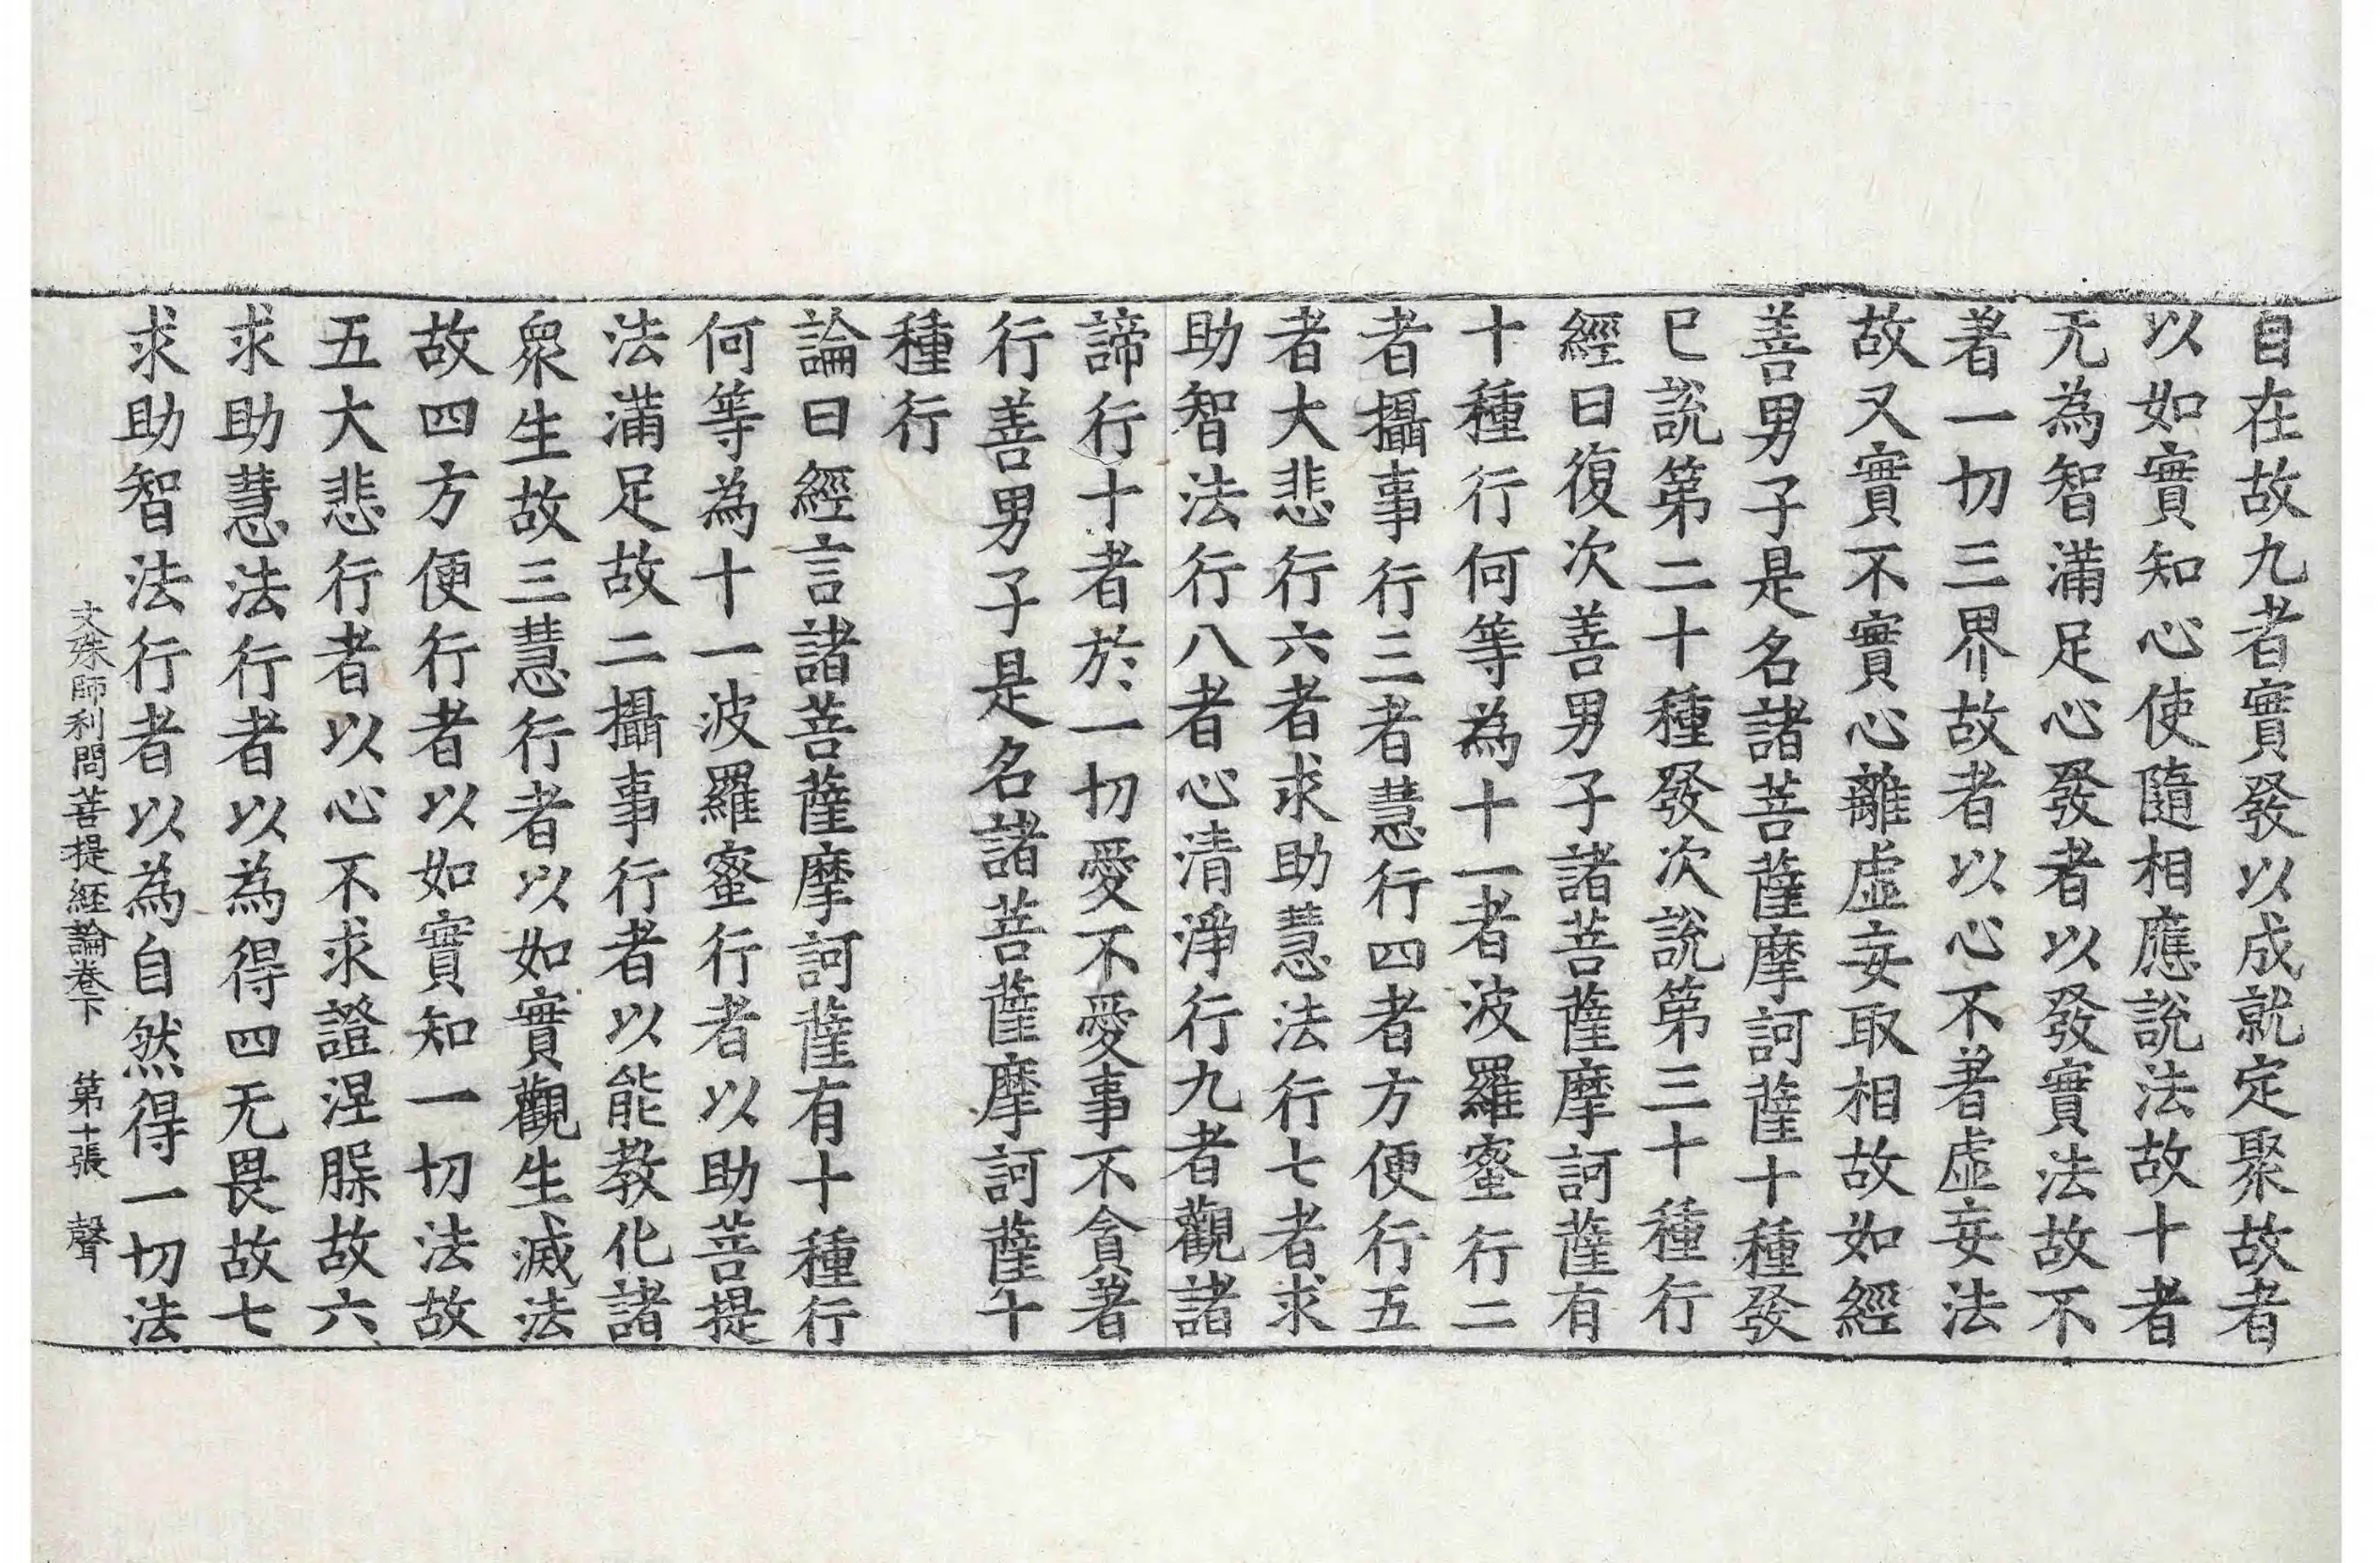 自在故九者實發以成就定聚故者
以如實知心使隨相應說法故十者
无為智滿足心發者以發實法故不
著一切三界故者以心不著虛妄法
故又實不實心離虛妄取相故如經
善男子是名諸菩薩摩訶薩十種發
已說第二十種發次說第三十種行
經曰復次善男子諸菩薩摩訶薩有
十種行何等為十一者波羅蜜行二
者攝事行三者慧行四者方便行五
者大悲行六者求助慧法行七者求
助智法行八者心清淨行九者觀諸
諦行十者於一切愛不愛事不貪著
行善男子是名諸菩薩摩訶薩十
種行
論曰經言諸菩薩摩訶薩有十種行
何等為十一波羅蜜行者以助菩提
法滿足故二攝事行者以能教化諸
眾生故三慧行者以如實觀生滅法
故四方便行者以如實知一切法故
五大悲行者以心不求證涅槃故六
求助慧法行者以為得四无畏故七
求助智法行者以為自然得一切法
文殊師利問菩提經論卷下 第十張 聲